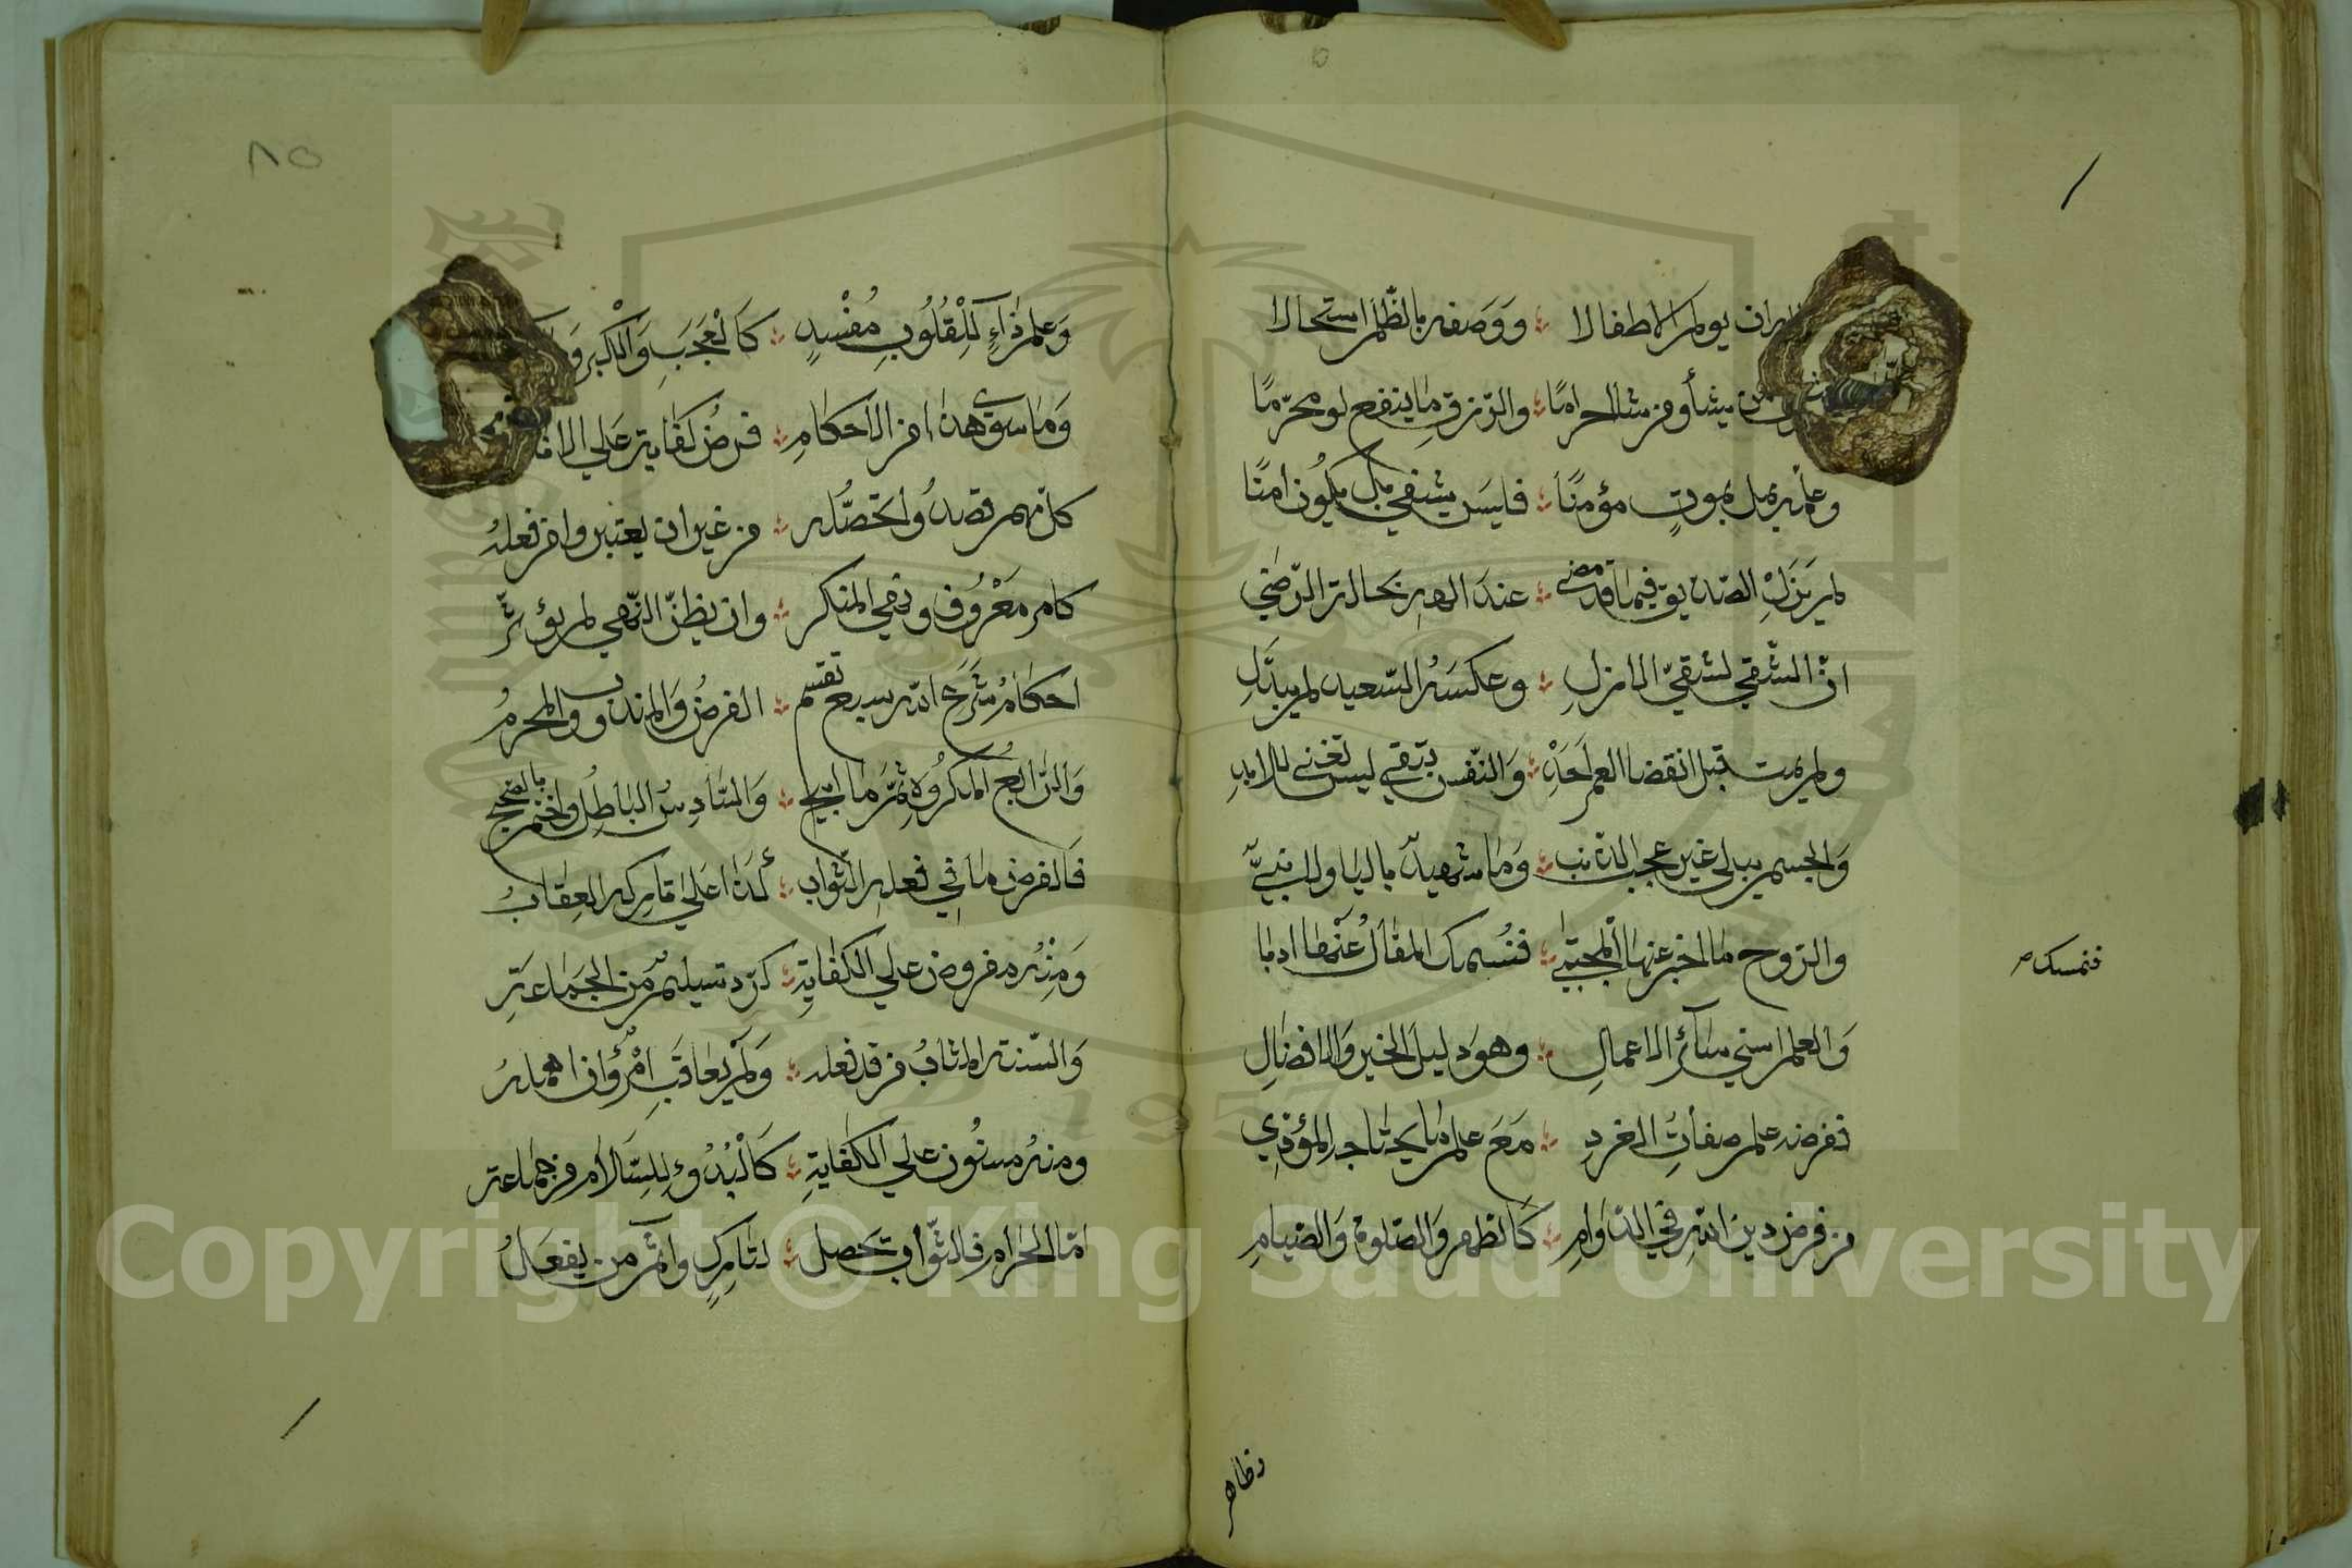 ان يولم الاطفالا ؛ ووصفه بالظلم استحالا
من يشأ ومن شا احراما ؛ والرزق ما ينفع لو محرّما
وعلمه بمن يموت مؤمنًا ؛ فليس يشقي بل يكون امنًا
لم يزل الصديق فيما قد مضي ؛ عند الهه بحالة الرّضي
انّ الشقي لشقيّ الازل ؛ وعكسه السّعيد لم يبدّل
ولم يمت قبل انقضا العمر احد ؛ والنّفس تبقي ليس تفني للابد
والجسم يبلي غير عجب الذنب ؛ وما شهيدٌ باليا ولا نبيّ
والروح ما اخبر عنها المجتبي ؛ فنمسك المقال عنها ادبا
والعلم اسني سائر الاعمال ؛ وهو دليل الخير والافضال
ففرضه علم صفات الفرد ؛ مع علم ما يحتاجه المؤدي
من فرض دين الله في الدّوام ؛ كالطهر والصّلوة والصيام
فنمسك صح
وظاهر
٨٥
وعلم داء للقلوب مُفْسد ؛ كالعجب والكبر و
وما سوي هذا من الاحكام ؛ فرض كفاية علي الانا
كل مهم قصدوا تحصّله ؛ من غير ان يعتبروا من فعله
كامر معروف ونهي المنكر ؛ وان يظنّ النّهي لم يؤثّر
احكام شرع الله سبع تقسم ؛ الفرض والمندوب والمحرم
والرابع المكروه ثمّ ما ابيح ؛ والسّادس الباطل واختم بالصحيح
فالفرض ما في فعله الثّواب ؛ كذا علي تاركه العقاب
ومنه مفروض علي الكفاية ؛ كردّ تسليم من الجماعة
والسّنة المثاب من قد فعله ؛ ولم يعاقب امرؤ ان اهمله
ومنه مسنون علي الكفاية ؛ كالبدوء للسلام من جماعة
امّا الحرام فالثّواب تحصل ؛ لتارك واثم من يفعل
Copyright © King Saud University
1957